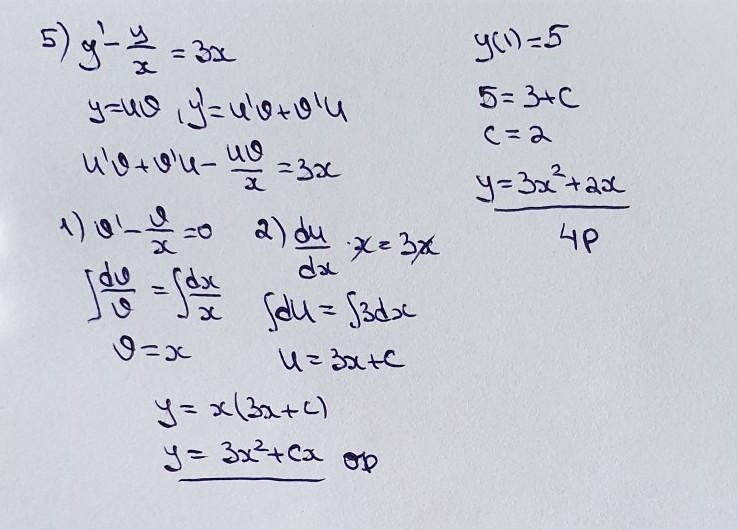 5) y' - y/x = 3x
y = uϑ, y' = u'ϑ + ϑ'u
u'ϑ + ϑ'u - uϑ/x = 3x
1) ϑ' - ϑ/x = 0
∫dϑ/ϑ = ∫dx/x
ϑ = x
2) du/dx · x = 3x
∫du = ∫3dx
u = 3x + c
y = x(3x + c)
y = 3x² + cx OP
y(1) = 5
5 = 3 + c
c = 2
y = 3x² + 2x
4P